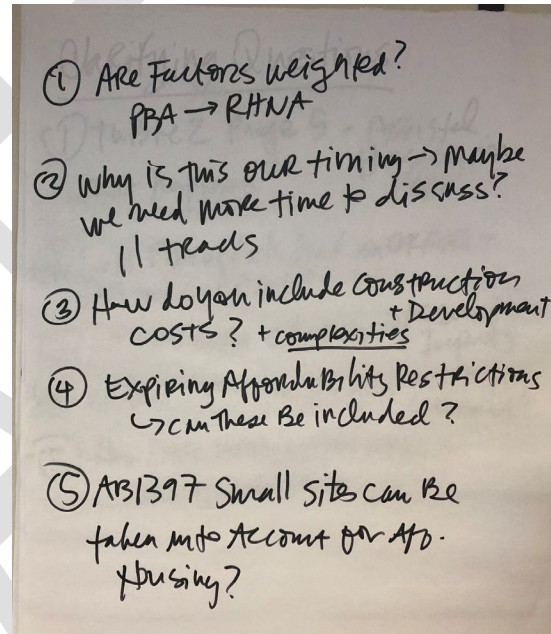 ① Are Factors weighted?
PBA → RHNA
② Why is this our timing → Maybe
we need more time to discuss?
11 trads
③ How do you include construction
+ Development
costs? + complexities
④ Expiring Affordability Restrictions
↳ can these Be included?
⑤ AB1397 Small sites can Be
taken into Account for Afo.
Housing?
Clarifying Questions